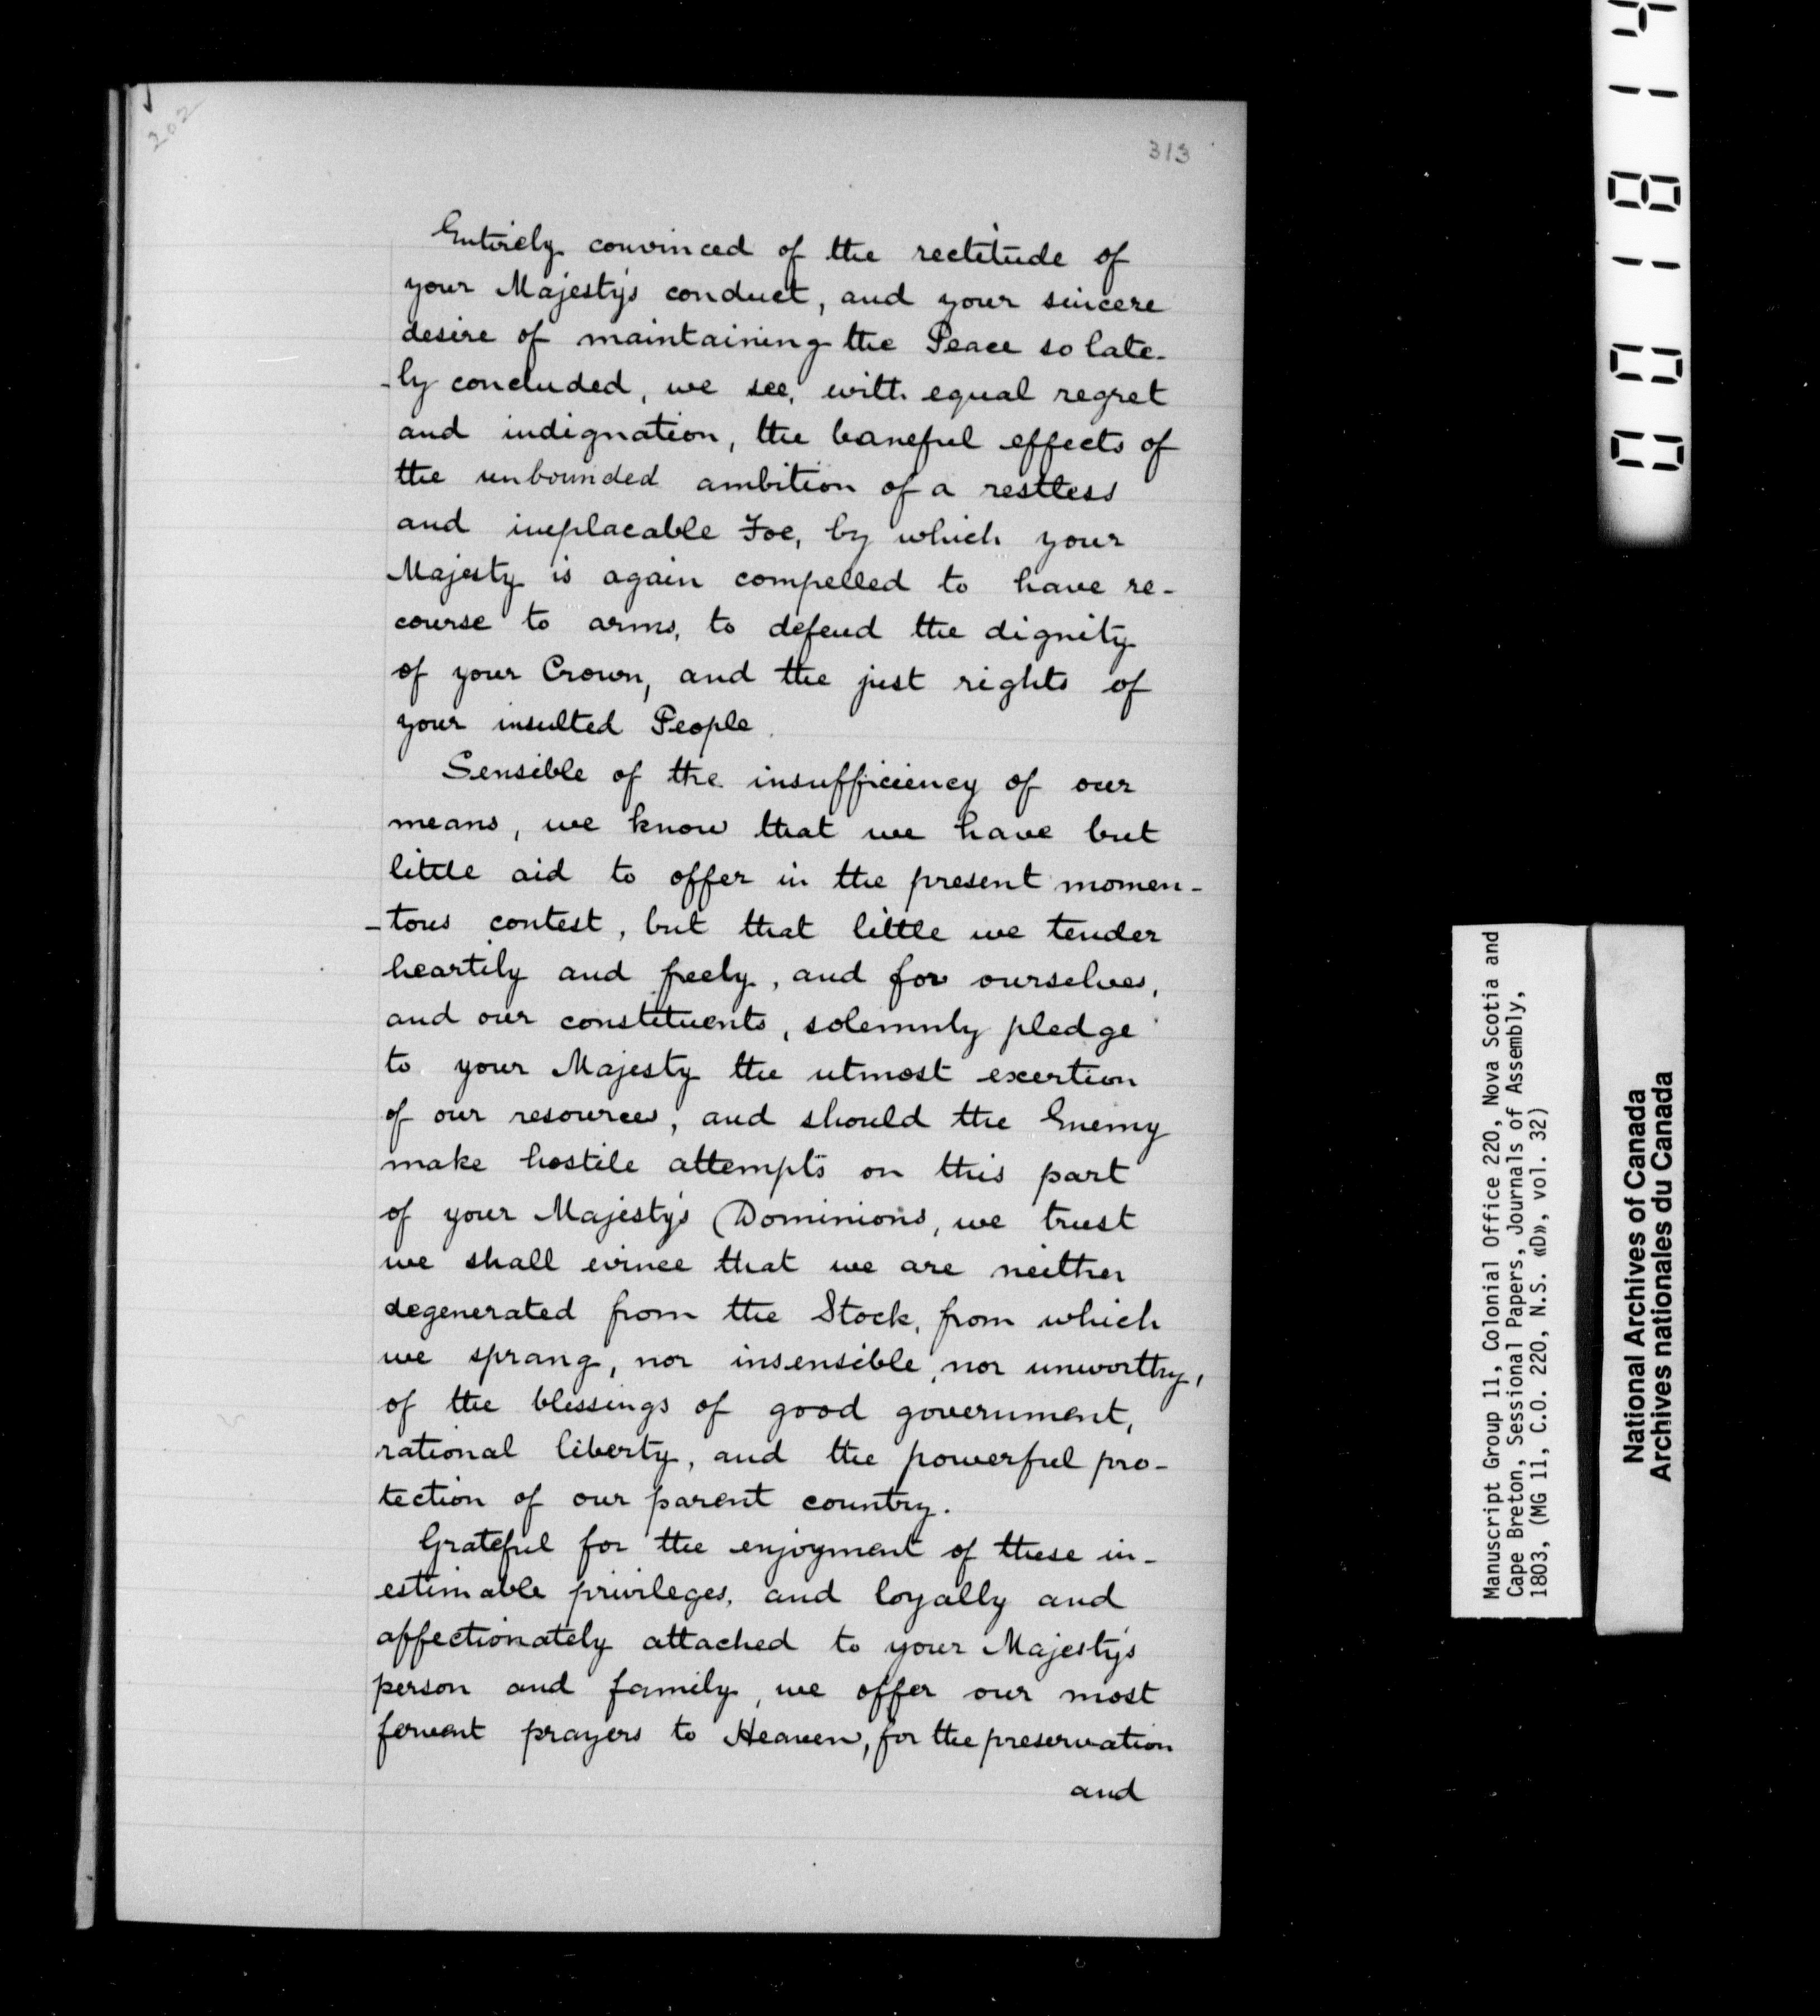 202
313
Entirely convinced of the rectitude of
your Majesty's conduct, and your sincere
desire of maintaining the Peace so late-
-ly concluded, we see, with equal regret
and indignation, the baneful effects of
the unbounded ambition of a restless
and implacable Foe, by which your
Majesty is again compelled to have re-
course to arms, to defend the dignity
of your Crown, and the just rights of
your insulted People.
Sensible of the insufficiency of our
means, we know that we have but
little aid to offer in the present momen-
-tous contest, but that little we tender
heartily and freely, and for ourselves,
and our constituents, solemnly pledge
to your Majesty the utmost exertion
of our resources, and should the Enemy
make hostile attempts on this part
of your Majesty's Dominions, we trust
we shall evince that we are neither
degenerated from the Stock, from which
we sprang, nor insensible, nor unworthy,
of the blessings of good government,
rational liberty, and the powerful pro-
tection of our parent country.
Grateful for the enjoyment of these in-
estimable privileges, and loyally and
affectionately attached to your Majesty's
person and family, we offer our most
fervent prayers to Heaven, for the preservation
and
001814
Manuscript Group 11, Colonial Office 220, Nova Scotia and
Cape Breton, Sessional Papers, Journals of Assembly,
1803, (MG 11, C.O. 220, N.S. «D», vol. 32)
National Archives of Canada
Archives nationales du Canada